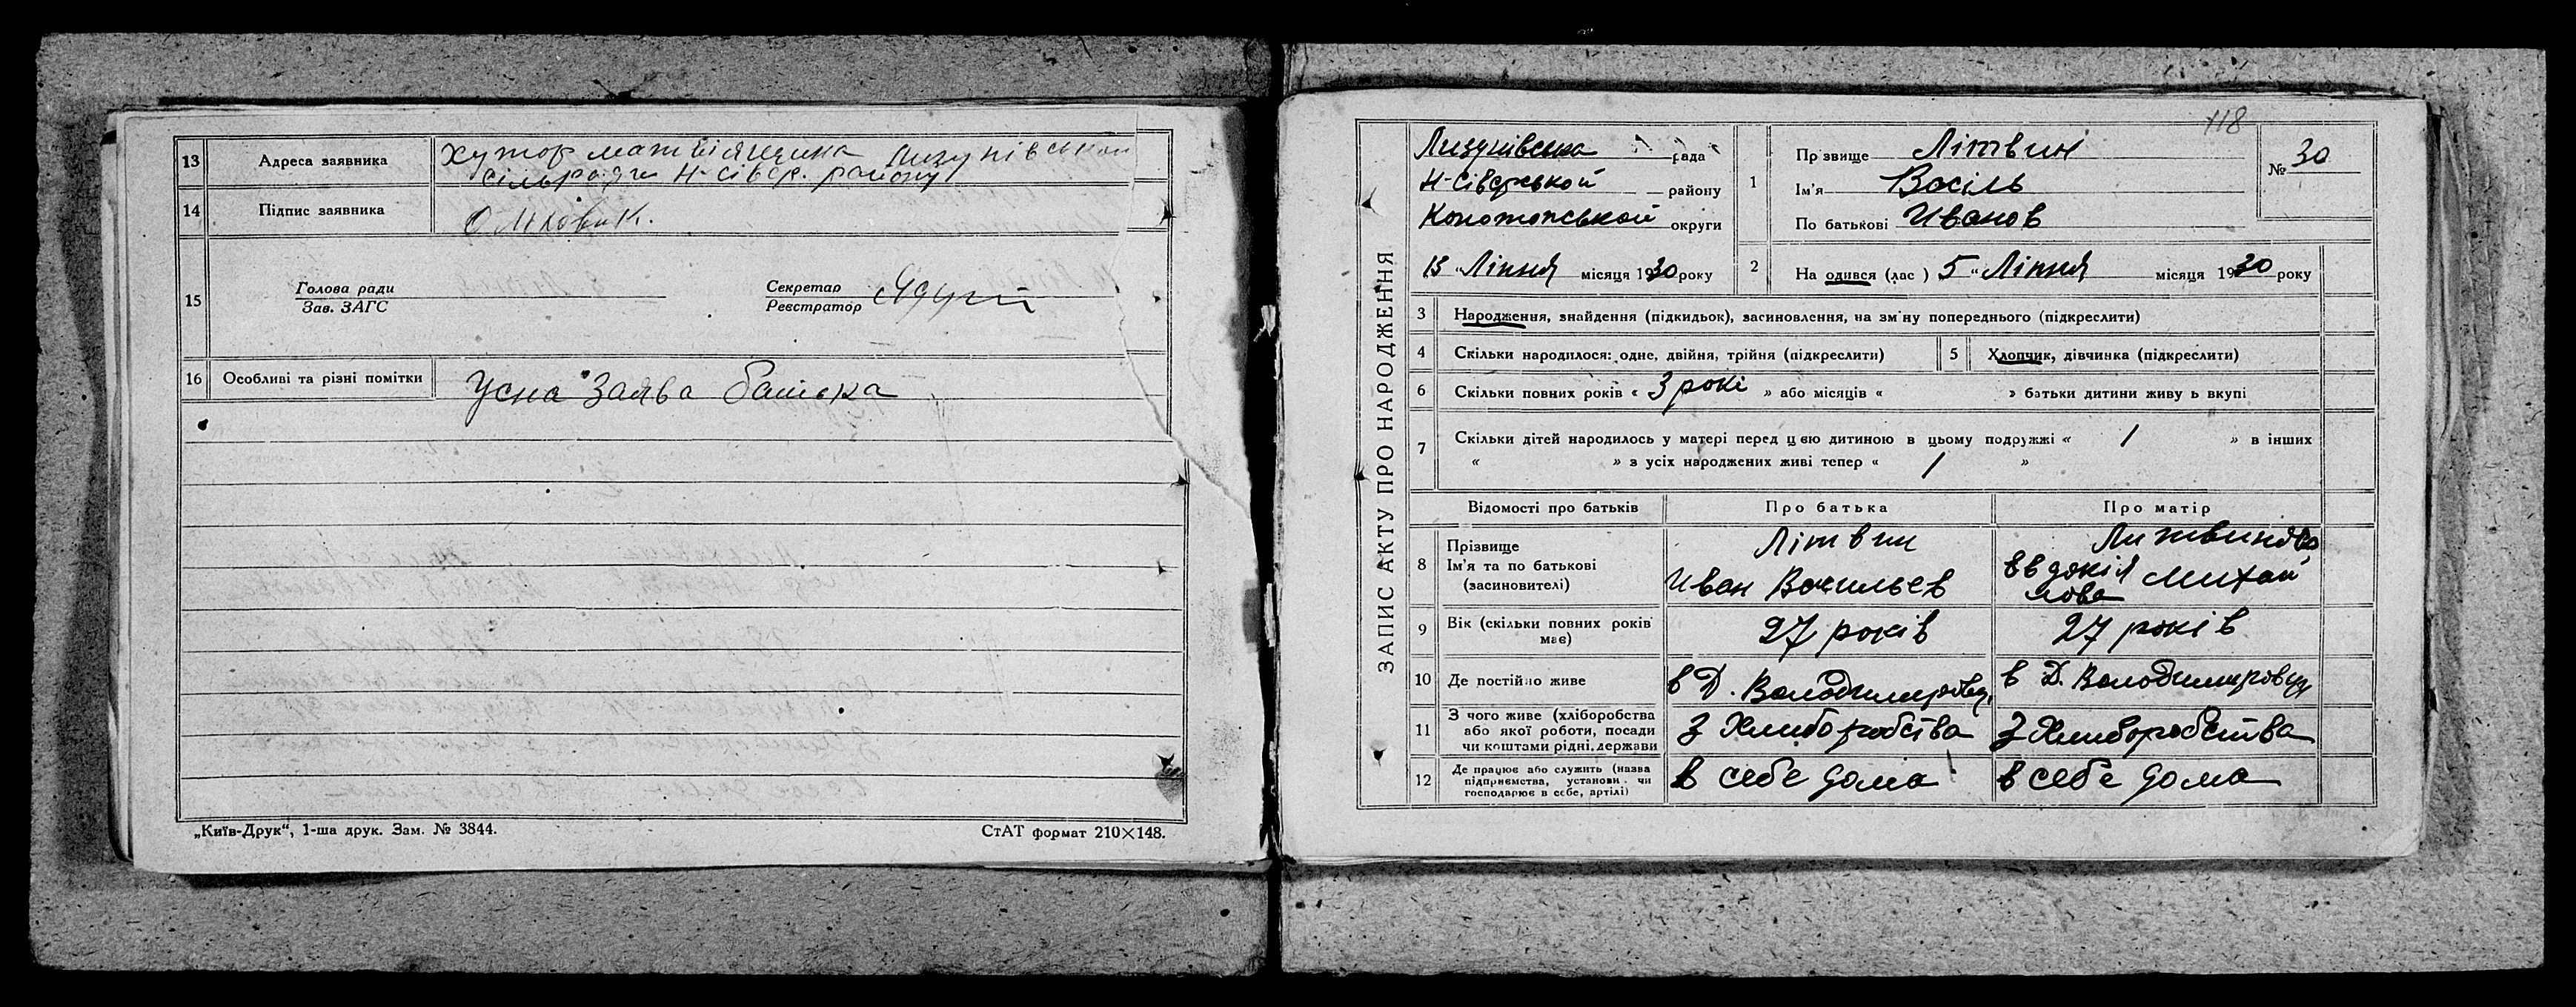 13 Адреса заявника Хутор матвіящина Лизунівськои
сільради Н-сівер. району
14 Підпис заявника
15 Голова ради Секретар
Зав. ЗАГС Реєстратор
16 Особливі та різні помітки Усна Заява батька
„Київ-Друк“, 1-ша друк. Зам. № 3844. СтАТ формат 210×148.
118
ЗАПИС АКТУ ПРО НАРОДЖЕННЯ
Лизунівська рада
Н-Сіверськой району
Конотопськой округи
15 "Ліпня місяця 1930 року
1 Прізвище Літвин
Ім'я Васіль
По батькові Иванов
№ 30
2 На одився (лас ) 5 "Ліпня місяця 1930 року
3 Народження, знайдення (підкидьок), засиновлення, на зміну попереднього (підкреслити)
4 Скільки народилося: одне, двійня, трійня (підкреслити) 5 Хлопчик, дівчинка (підкреслити)
6 Скільки повних років « 3 рокі » або місяців « » батьки дитини живу ь вкупі
7 Скільки дітей народилось у матері перед цею дитиною в цьому подружжі « 1 » в інших
« » з усіх народжених живі тепер « 1 »
Відомості про батьків Про батька Про матір
8 Прізвище Літвин Литвинова
Ім'я та по батькові Иван Васильев Евдокія Михай
(засиновителі) лова
9 Вік (скільки повних років має) 27 років 27 років
10 Де постійно живе в Д. Володимировц. в Д. Володимировцу
11 З чого живе (хліборобства або якої роботи, посади чи коштами рідні, держави З Хлиборобства З Хлиборобства
12 Де працює або служить (назва підприємства, установи чи господарює в себе, артілі) в себе дома в себе дома